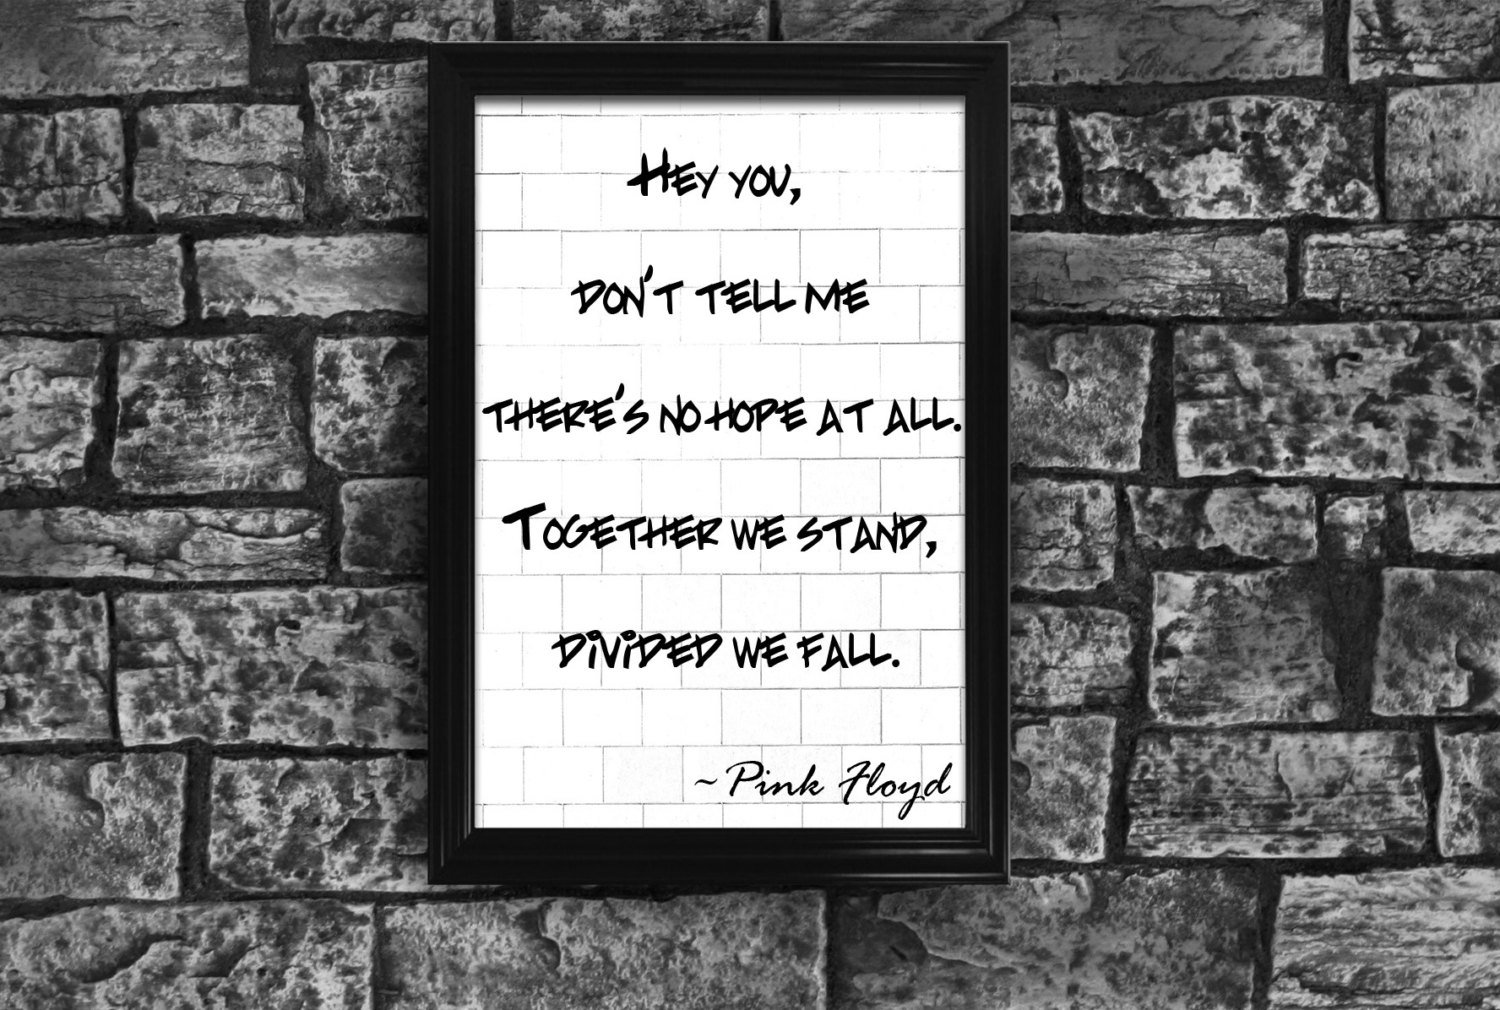 Hey you,
don't tell me
there's no hope at all.
Together we stand,
divided we fall.
~Pink Floyd